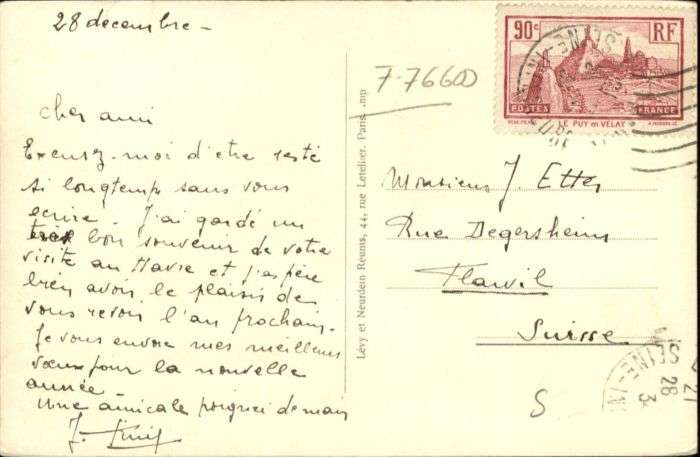 28 decembre -
cher ami
Excusez-moi d'etre resté
si longtemps sans vous
ecrire - J'ai gardé un
tres bon souvenir de votre
visite au Havre et j'espère
bien avoir le plaisir de
vous revoir l'an prochain -
Je vous envoie mes meilleurs
vœux pour la nouvelle
année -
Une amicale poignée de main
J.
Lévy et Neurdein Réunis, 44, rue Letellier, Paris Imp
7-76600
90c RF
POSTES FRANCE
LE PUY en VELAY
Monsieur J. Etter
Rue Degersheim
Flawil
Suisse
S
SEINE-IN
21
28
3